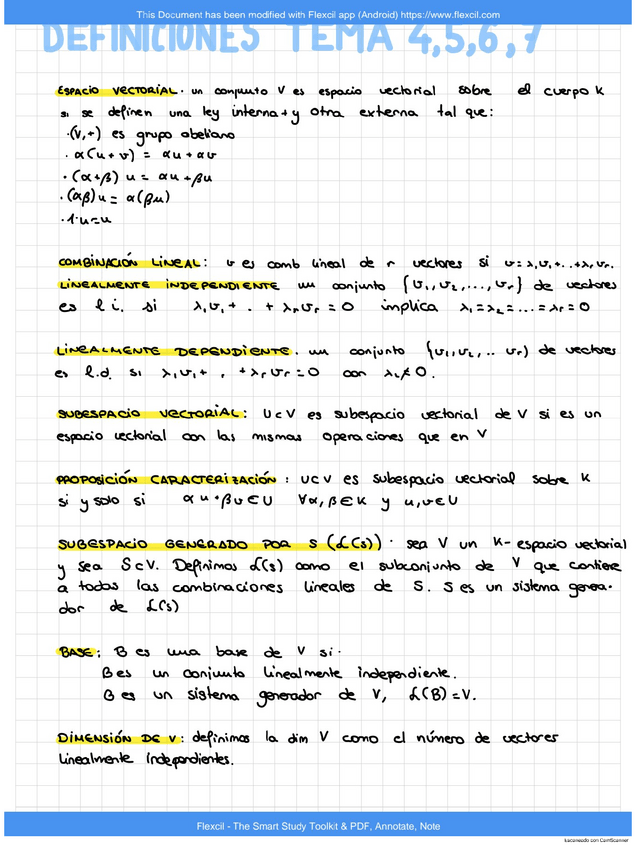 This Document has been modified with Flexcil app (Android) https://www.flexcil.com
DEFINICIONES TEMA 4,5,6,7
ESPACIO VECTORIAL. un conjunto V es espacio vectorial sobre el cuerpo K
si se definen una ley interna + y otra externa tal que:
·(V,+) es grupo abeliano
· α(u+v) = αu+αv
· (α+β) u = αu+βu
· (αβ)u = α(βu)
· 1·u=u
COMBINACIÓN LINEAL: v es comb lineal de r vectores si v=λ₁v₁+...+λᵣvᵣ.
LINEALMENTE INDEPENDIENTE un conjunto {v₁,v₂,...,vᵣ} de vectores
es l i. si λ₁v₁+ . + λᵣvᵣ=0 implica λ₁=λ₂=...=λᵣ=0
LINEALMENTE DEPENDIENTE. un conjunto {v₁,v₂,.. vᵣ) de vectores
es l.d. si λ₁v₁+ , +λᵣvᵣ=0 con λᵢ≠0.
SUBESPACIO VECTORIAL: U⊂V es subespacio vectorial de V si es un
espacio vectorial con las mismas operaciones que en V
PROPOSICIÓN CARACTERIZACIÓN: U⊂V es subespacio vectorial sobre K
si y solo si αu+βv∈U ∀α,β∈K y u,v∈U
SUBESPACIO GENERADO POR S (L(S)) · sea V un K- espacio vectorial
y sea S⊂V. Definimos L(S) como el subconjunto de V que contiene
a todas las combinaciones lineales de S. S es un sistema genera-
dor de L(S)
BASE: B es una base de V si·
B es un conjunto linealmente independiente.
B es un sistema generador de V, L(B)=V.
DIMENSIÓN DE V: definimos la dim V como el número de vectores
linealmente independientes.
Flexcil - The Smart Study Toolkit & PDF, Annotate, Note
Escaneado con CamScanner